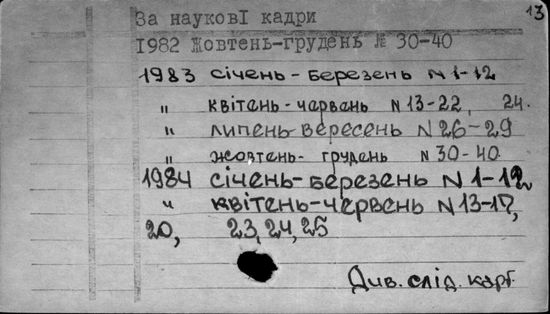 13
За наукові кадри
1982 Жовтень-грудень № 30-40
1983 січень-березень N 1-12
" квітень-червень N 13-22, 24.
" липень-вересень N 26-29
" жовтень-грудень N 30-40
1984 січень-березень N 1-12
" квітень-червень N 13-17,
20, 23, 24, 25
Див. слід. карт.